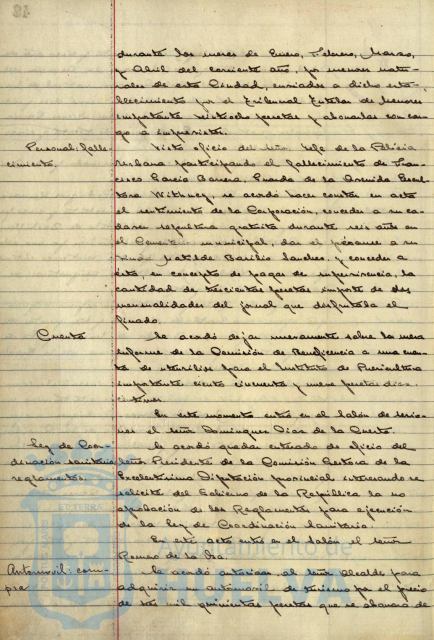 durante los meses de Enero, Febrero, Marzo,
y Abril del corriente año, por menores natu-
rales de esta Ciudad, enviados a dicho esta-
blecimiento por el Tribunal Tutelar de Menores
importante veintiocho pesetas y abonarlas con car-
go a imprevistos.
Personal: falle-
cimiento.
Visto oficio del señor Jefe de la Policia
urbana participando el fallecimiento de Fran-
cisco Garcia Barrera, Guarda de la Avenida Escul-
tora Withney, se acordó hacer constar en acta
el sentimiento de la Corporación, conceder a su ca-
daver sepultura gratuita durante seis años en
el Cementerio municipal, dar el pésame a su
viuda Matilde Basilio Sanchez, y conceder a
ésta, en concepto de pagas de supervivencia, la
cantidad de trescientas pesetas importe de dos
mensualidades del jornal que disfrutaba el
finado.
Cuenta
Se acordó dejar nuevamente sobre la mesa
informe de la Comisión de Beneficencia a una cuen-
ta de utensilios para el Instituto de Puericultura
importante ciento cincuenta y nueve pesetas diez
céntimos.
En este momento entra en el Salón de sesio-
nes el señor Dominguez Diaz de la Cuesta.
Ley de Coor-
dinación sanitaria
reglamentos.
Se acordó quedar enterado de oficio del
Señor Presidente de la Comisión Gestora de la
Excelentisima Diputación provincial interesando se
solicite del Gobierno de la República la no
aprobación de los Reglamentos para ejecución
de la ley de Coordinación Sanitaria.
En este acto entra en el salón el señor
Romero de la
Automóvil: com-
pra
Se acordó autorizar al señor Alcalde para
adquirir un automovil de turismo por el precio
de mil quinientas pesetas que se abonara de